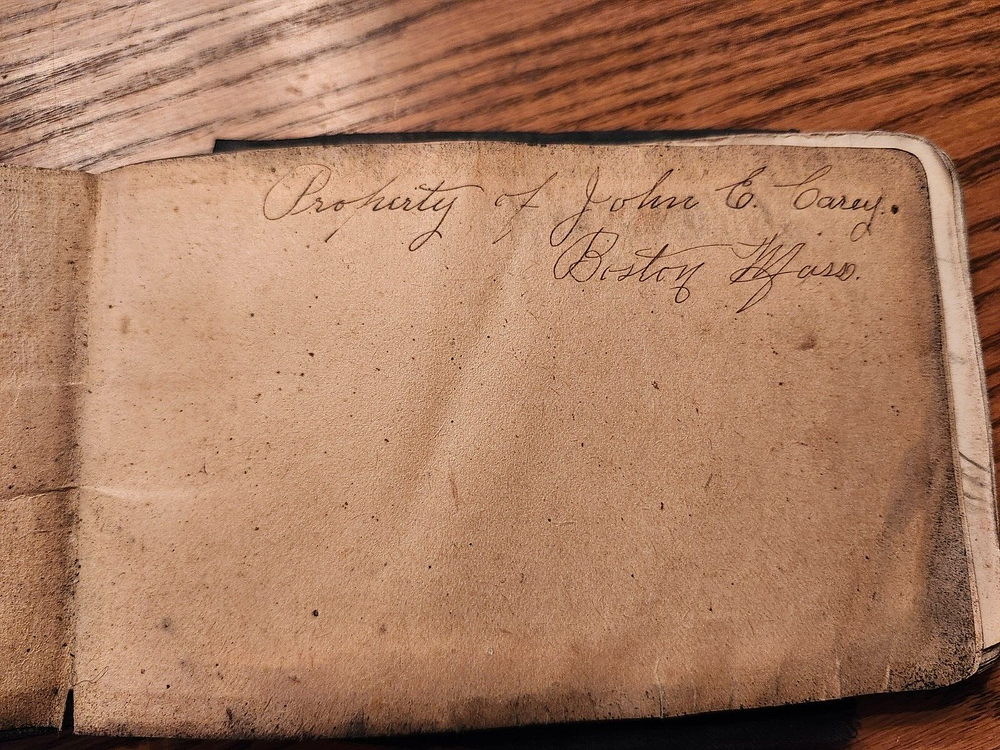 Property of John E. Carey.
Boston Mass.